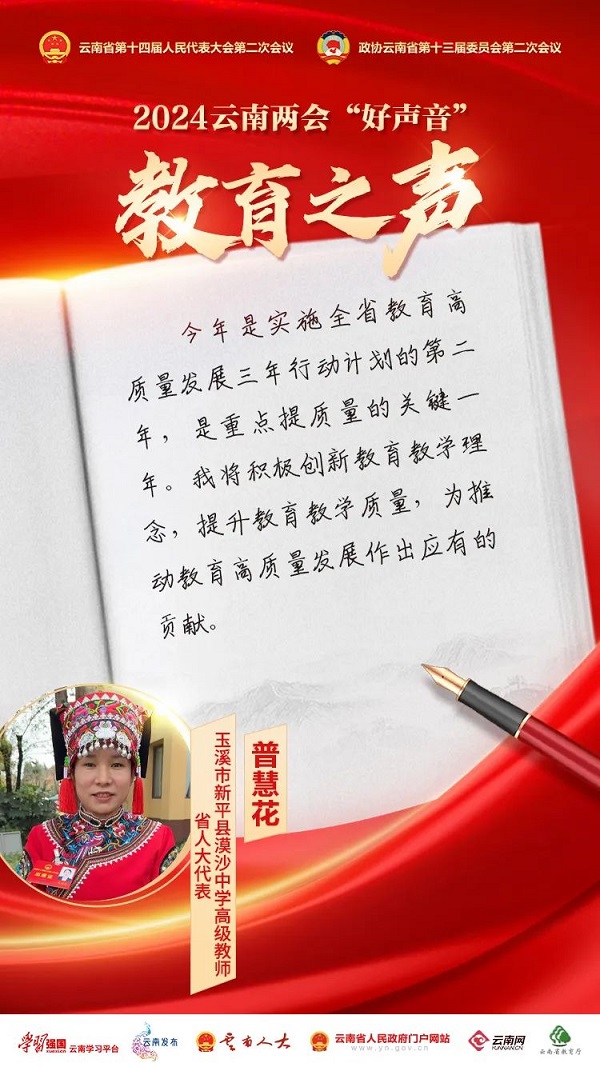 云南省第十四届人民代表大会第二次会议
政协云南省第十三届委员会第二次会议
2024云南两会“好声音”
教育之声
今年是实施全省教育高
质量发展三年行动计划的第二
年，是重点提质量的关键一
年。我将积极创新教育教学理
念，提升教育教学质量，为推
动教育高质量发展作出应有的
贡献。
普慧花
玉溪市新平县漠沙中学高级教师
省人大代表
学习强国
云南学习平台
云南发布
云南人大
云南省人民政府门户网站
www.yn.gov.cn
云南网
YUNNAN.CN
云南省教育厅